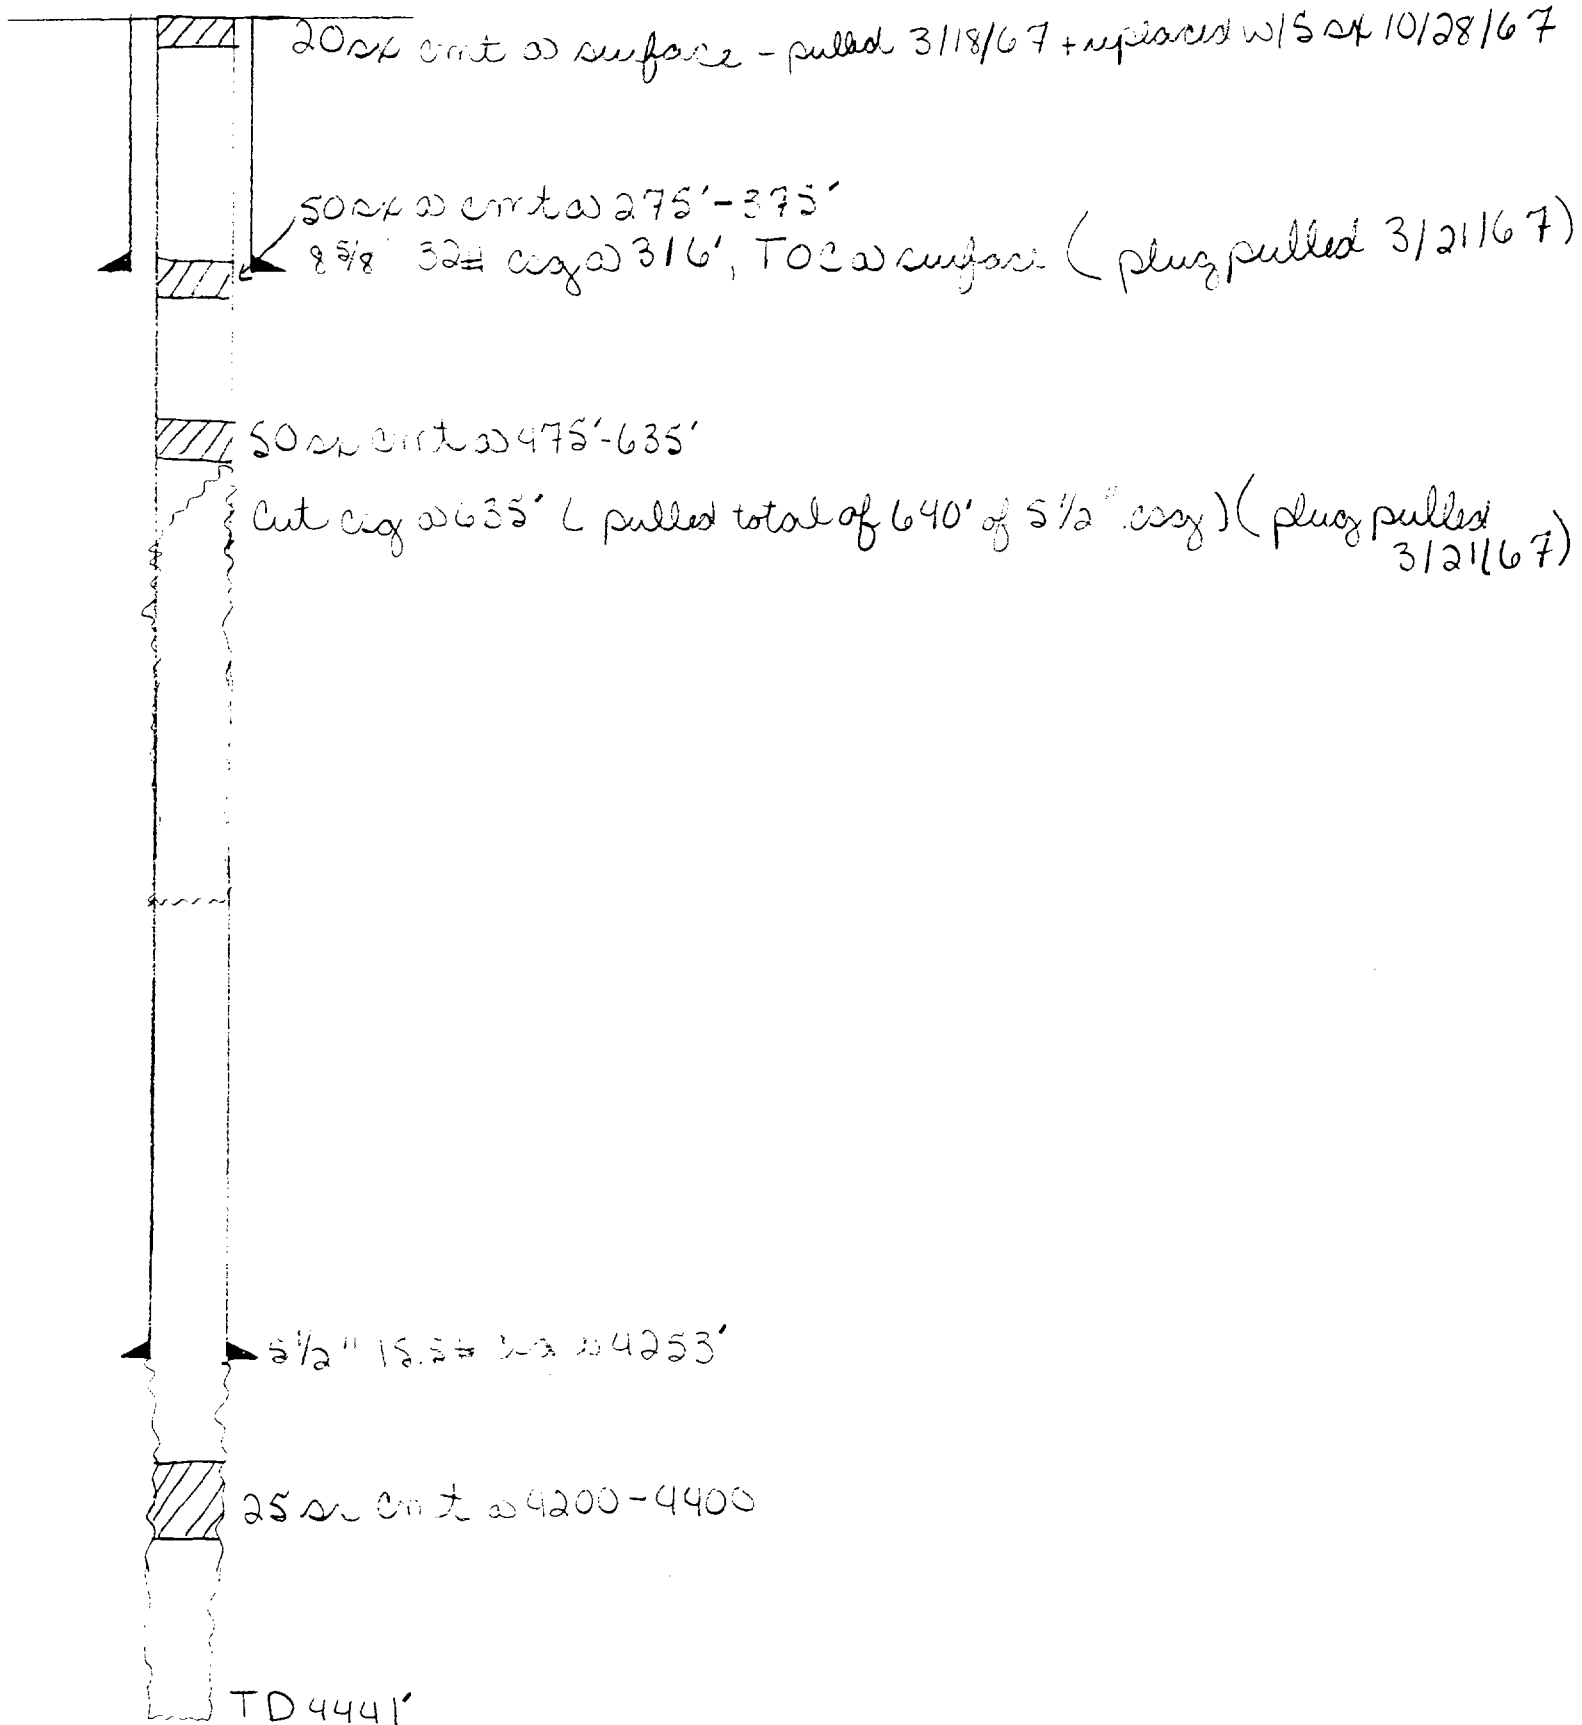 20 sx cmt @ surface - pulled 3/18/67 + replaced w/5 sx 10/28/67
50 sx @ cmt @ 275'-375'
8 5/8" 32# csg @ 316', TOC @ surface (plug pulled 3/21/67)
50 sx cmt @ 475'-635'
Cut csg @ 635' (pulled total of 640' of 5 1/2" csg) (plug pulled
3/21/67)
5 1/2" 15.5# csg @ 4253'
25 sx cmt @ 4200-4400
TD 4441'